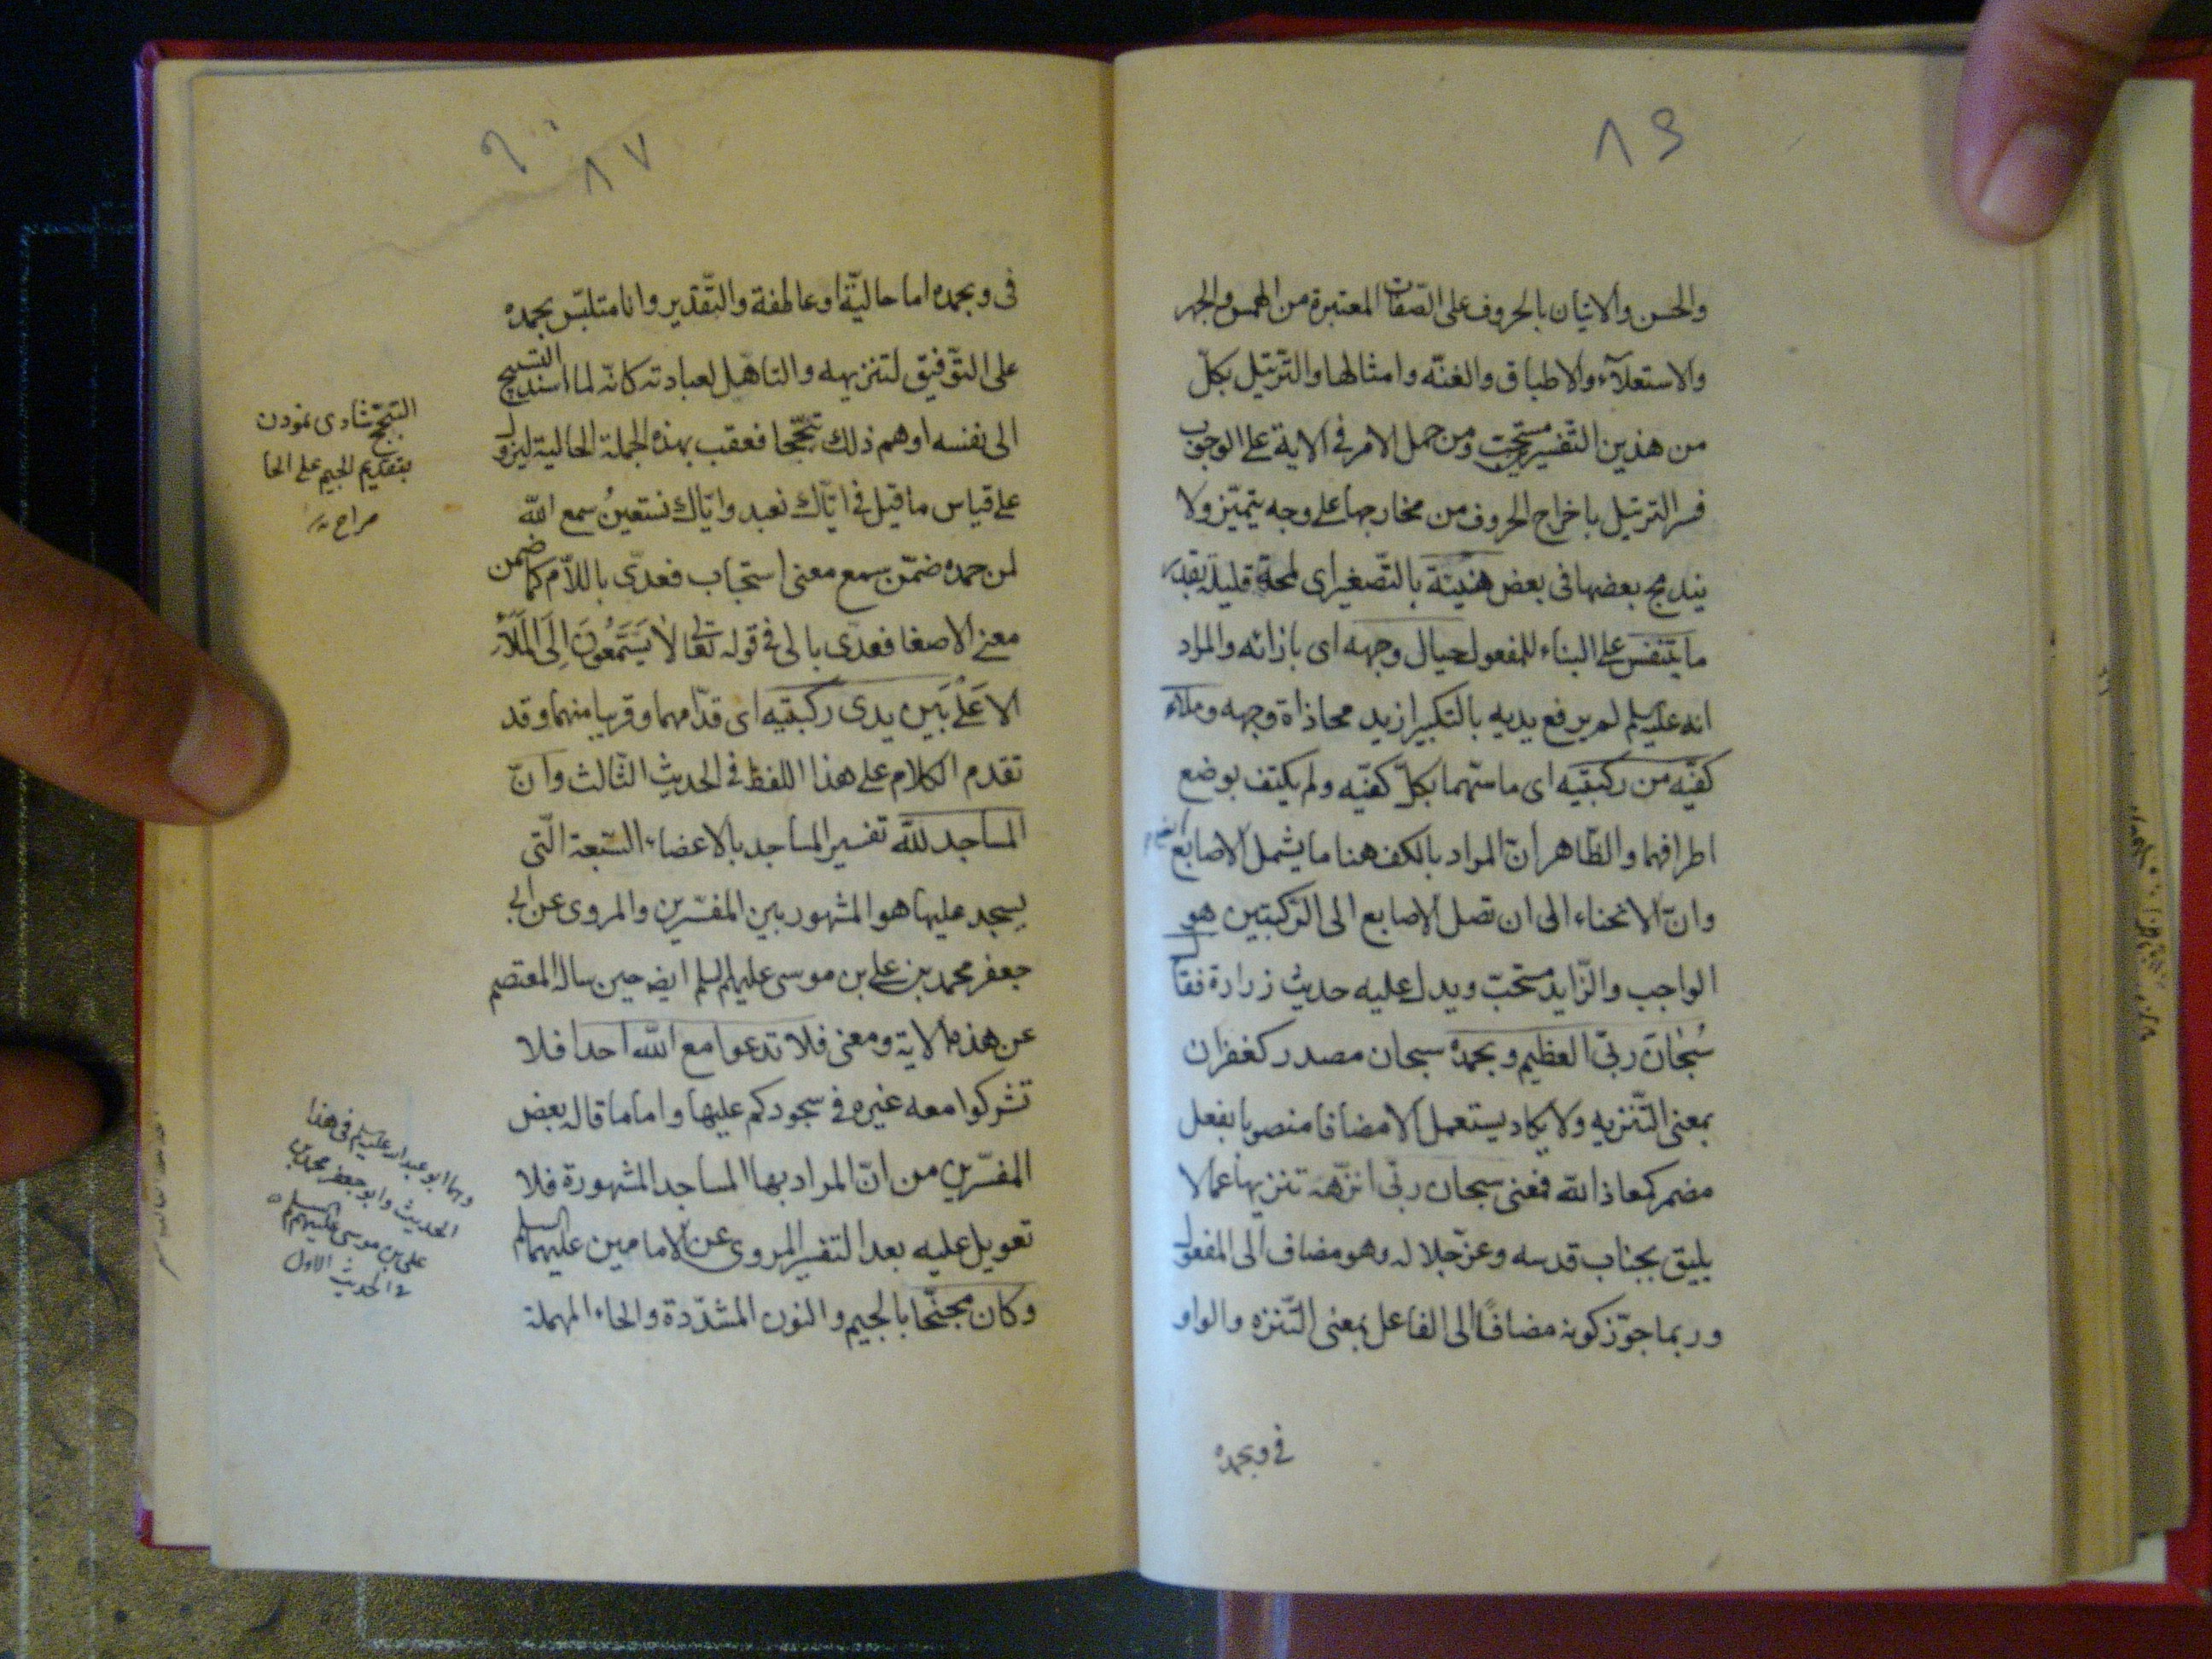 ٨٦
والحسن والاتيان بالحروف على الصّفات المعتبرة من الهمس والجهر
والاستعلآء والاطباق والغنّه وامثالها والتّرتيل بكلّ
من هذين التّفسيرين مستحبّ ومن حمل الامر فى الاية على الوجوب
فسر الترتيل باخراج الحروف من مخارجها على وجه يتميّز ولا
يندمج بعضها فى بعض هنيئة بالتّصغير اى لمحة قليلة بقدر
ما يتنفس على البناء للمفعول حيال وجهه اى بازائه والمراد
انه عليه السلم لم يرفع يديه بالتكبير ازيد محاذاة وجهه وملاء
كفّيه من ركبتيه اى ماسّهما بكلّ كفّيه ولم يكتف بوضع
اطرافهما والظّاهر انّ المراد بالكف هنا ما يشمل الاصابع
وانّ الانحناء الى ان تصل الاصابع الى الرّكبتين هو
الواجب والزّايد مستحّبّ ويدل عليه حديث زرارة فقال
سُبْحانَ ربّى العظيم وبحمده سبحان مصدر كغفران
بمعنى التّنزيه ولا يكاد يستعمل الا مضافا منصوبا بفعل
مضمر كمعاذ الله فمعنى سبحان ربّى انزّهه تنزيها عمالا
يليق بجناب قدسه وعزّ جلاله وهو مضاف الى المفعول
وربما جوّز كونه مضافًا الى الفاعل بمعنى التّنزه والواو
فى وبحمده
٨٧
فى وبحمده اما حاليّة او عاطفة والتّقدير وانا متلبّس بحمده
على التّوفيق لتنزيهه والتاهّل لعبادته كانّه لما اسند التسبيح
الى نفسه اوهم ذلك تبجّحا فعقب بهذه الجملة الحالية ليزول
على قياس ما قيل فى ايّاك نعبد وايّاك نستعينُ سمع الله
لمن حمده ضمّن سمع معنى استجاب فعدّى باللاّم كما ضمن
معنى الاصغا فعدّى بالى فى قوله تعالى لا يَسَّمَّعُونَ اِلَى المَلَاءِ
الاَعْلى بَين يدى ركبتيه اى قدّامهما وقريبا منهما وقد
تقدم الكلام على هذا اللفظ فى الحديث الثّالث وانّ
المساجد للّه تفسير المساجد بالاعضاء السّبعة الّتى
يسجد عليها هو المشهور بين المفسّرين والمروى عن ابى
جعفر محمد بن على بن موسى عليهم السلم ايضا حين ساله المعتصم
عن هذه الاية ومعنى فلا تدعوا مع الله احدا فلا
تشركوا معه غيره فى سجودكم عليها واما ما قاله بعض
المفسّرين من انّ المراد بها المساجد المشهورة فلا
تعويل عليه بعد التفسير المروى عن الامامين عليهما السلم
وكان مجنّحا بالجيم والنون المشدّدة والحاء المهملة
التبجّح شادى نمودن
بتقديم الجيم على الحا
صراح
وهما ابو عبد الله عليه السلم فى هذا
الحديث وابو جعفر محمد بن
على بن موسى عليهم السلم
فى الحديث الاول